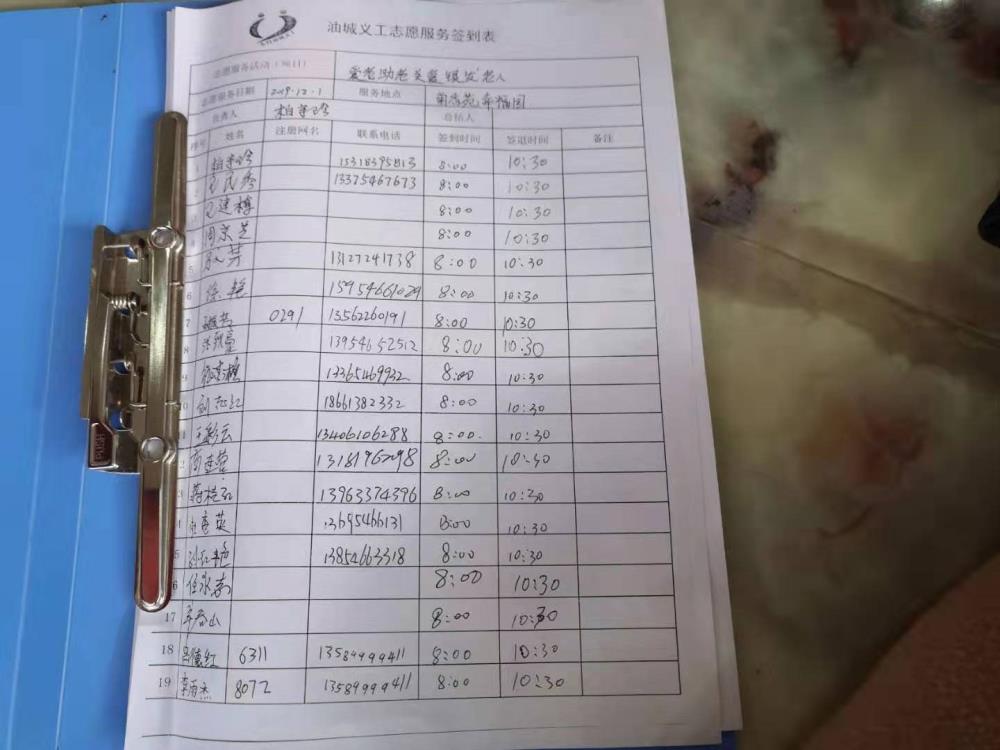 油城义工志愿服务签到表
志愿服务活动(项目) 爱老助老关爱 老人
志愿服务日期 2019.12.1 服务地点 菊香苑幸福园
负责人 总结人
序号 姓名 注册网名 联系电话 签到时间 签退时间 备注
15318395813 8:00 10:30
13375467673 8:00 10:30
8:00 10:30
周京芝 8:00 10:30
5 13127241738 8:00 10:30
6 徐艳 15954661029 8:00 10:30
7 0291 13562260191 8:00 10:30
8 13954652512 8:00 10:30
9 13365469932 8:00 10:30
18661382332 8:00 10:30
王彩云 13406106288 8:00 10:30
2 13181967298 8:00 10:30
3 蒋桂 13963374396 8:00 10:30
8:00 10:30
5 13854663318 8:00 10:30
6 任永 8:00 10:30
17 8:00 10:30
18 吕德红 6311 13589999411 8:00 10:30
19 李雨杰 8072 13589999411 8:00 10:30
PUSH